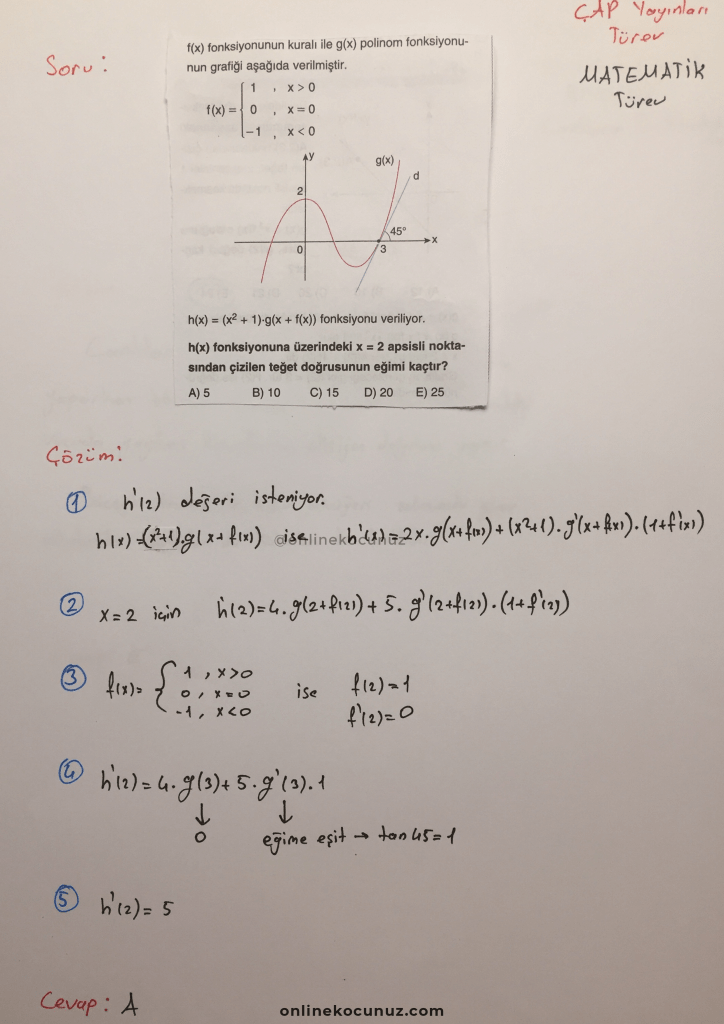 ÇAP Yayınları
Türev
MATEMATİK
Türev
Soru:
f(x) fonksiyonunun kuralı ile g(x) polinom fonksiyonu-
nun grafiği aşağıda verilmiştir.
f(x) = { 1 , x > 0
0 , x = 0
−1 , x < 0
y
g(x)
d
2
45°
x
0
3
h(x) = (x² + 1)·g(x + f(x)) fonksiyonu veriliyor.
h(x) fonksiyonuna üzerindeki x = 2 apsisli nokta-
sından çizilen teğet doğrusunun eğimi kaçtır?
A) 5 B) 10 C) 15 D) 20 E) 25
Çözüm:
1 h'(2) değeri isteniyor.
h(x) = (x²+1).g(x+f(x)) ise h'(x) = 2x.g(x+f(x)) + (x²+1).g'(x+f(x)).(1+f'(x))
@onlinekocunuz
2 x=2 için h'(2) = 4.g(2+f(2)) + 5.g'(2+f(2)).(1+f'(2))
3 f(x) = { 1 , x>0
0 , x=0 ise f(2)=1
-1 , x<0 f'(2)=0
4 h'(2) = 4.g(3) + 5.g'(3).1
↓ ↓
0 eğime eşit → tan45=1
5 h'(2) = 5
Cevap: A
onlinekocunuz.com